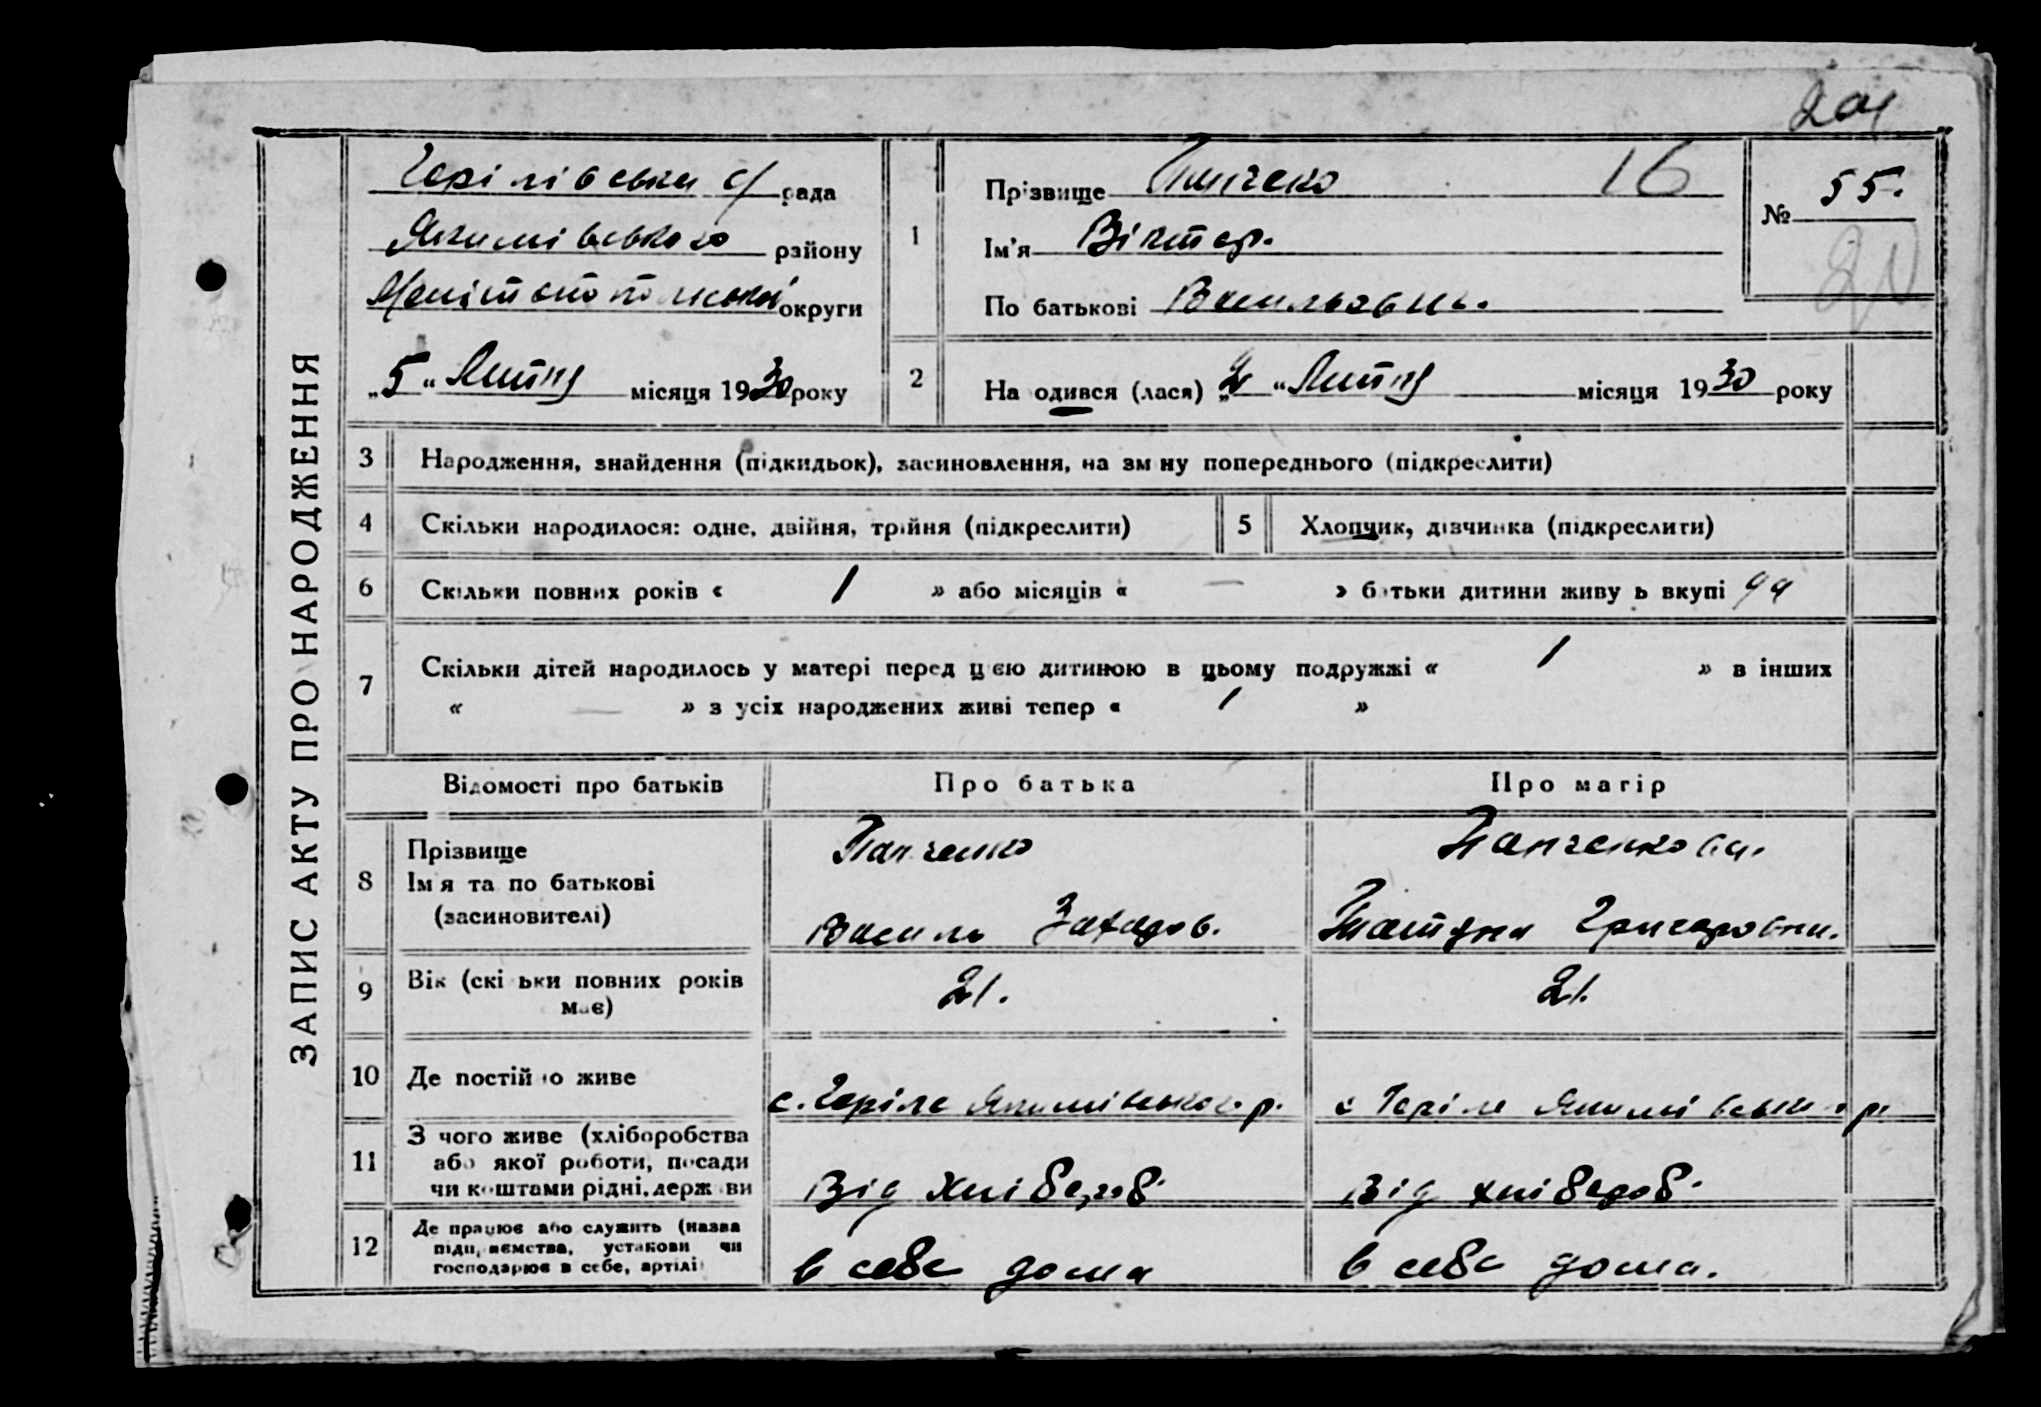 204
ЗАПИС АКТУ ПРО НАРОДЖЕННЯ
Горілівська с/ рада
Якимівського району
Мелітопольської округи
„5“ Липня місяця 1930 року
1
Прізвище Панченко 16
Ім'я Віктор.
По батькові Васильович.
№ 55.
2
На одився (лася) „2“ Липня місяця 1930 року
3 Народження, знайдення (підкидьок), засиновлення, на зм ну попереднього (підкреслити)
4 Скільки народилося: одне, двійня, трійня (підкреслити) 5 Хлопчик, дівчинка (підкреслити)
6 Скільки повних років « 1 » або місяців « — » батьки дитини живу ь вкупі
7 Скільки дітей народилось у матері перед цією дитиною в цьому подружжі « 1 » в інших
« — » з усіх народжених живі тепер « 1 »
Відомості про батьків Про батька Про матір
8 Прізвище
Ім'я та по батькові
(засиновителі)
Панченко
Василь Захаров.
Панченкова.
Татяна Григоровна.
9 Вік (скі ьки повних років
має)
21. 21.
10 Де постій о живе
с. Горіле Якимівського р. с Горіле Якимівськ р.
11 З чого живе (хліборобства
або якої роботи, посади
чи коштами рідні, держ ви
Від хлібороб. Від хлібороб.
12 Де працює або служить (назва
підприємства, установи чи
господарює в себе, артілі
в себе дома в себе дома.